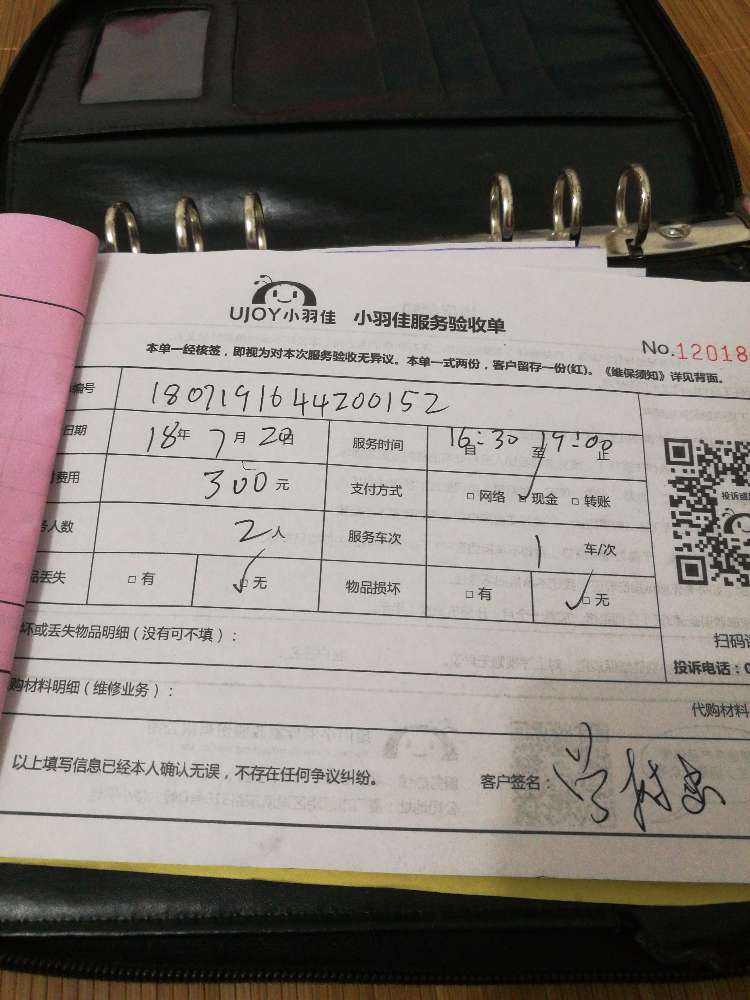 UJOY小羽佳 小羽佳服务验收单
No.12018
本单一经核签，即视为对本次服务验收无异议。本单一式两份，客户留存一份(红)。《维保须知》详见背面。
编号 1807191644200152
日期 18年7月20日 服务时间 16:30自 至19:00止
费用 300元 支付方式 □网络 ☑现金 □转账
人数 2人 服务车次 1 车/次
品丢失 □有 ☑无 物品损坏 □有 ☑无
坏或丢失物品明细（没有可不填）：
扫码
投诉电话：0
购材料明细（维修业务）：
代购材料
以上填写信息已经本人确认无误，不存在任何争议纠纷。 客户签名：